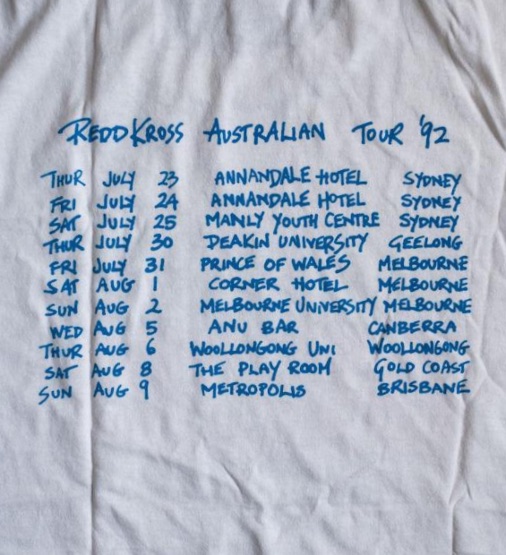 REDD KROSS AUSTRALIAN TOUR '92
THUR JULY 23 ANNANDALE HOTEL SYDNEY
FRI JULY 24 ANNANDALE HOTEL SYDNEY
SAT JULY 25 MANLY YOUTH CENTRE SYDNEY
THUR JULY 30 DEAKIN UNIVERSITY GEELONG
FRI JULY 31 PRINCE OF WALES MELBOURNE
SAT AUG 1 CORNER HOTEL MELBOURNE
SUN AUG 2 MELBOURNE UNIVERSITY MELBOURNE
WED AUG 5 ANU BAR CANBERRA
THUR AUG 6 WOOLLONGONG UNI WOOLLONGONG
SAT AUG 8 THE PLAY ROOM GOLD COAST
SUN AUG 9 METROPOLIS BRISBANE